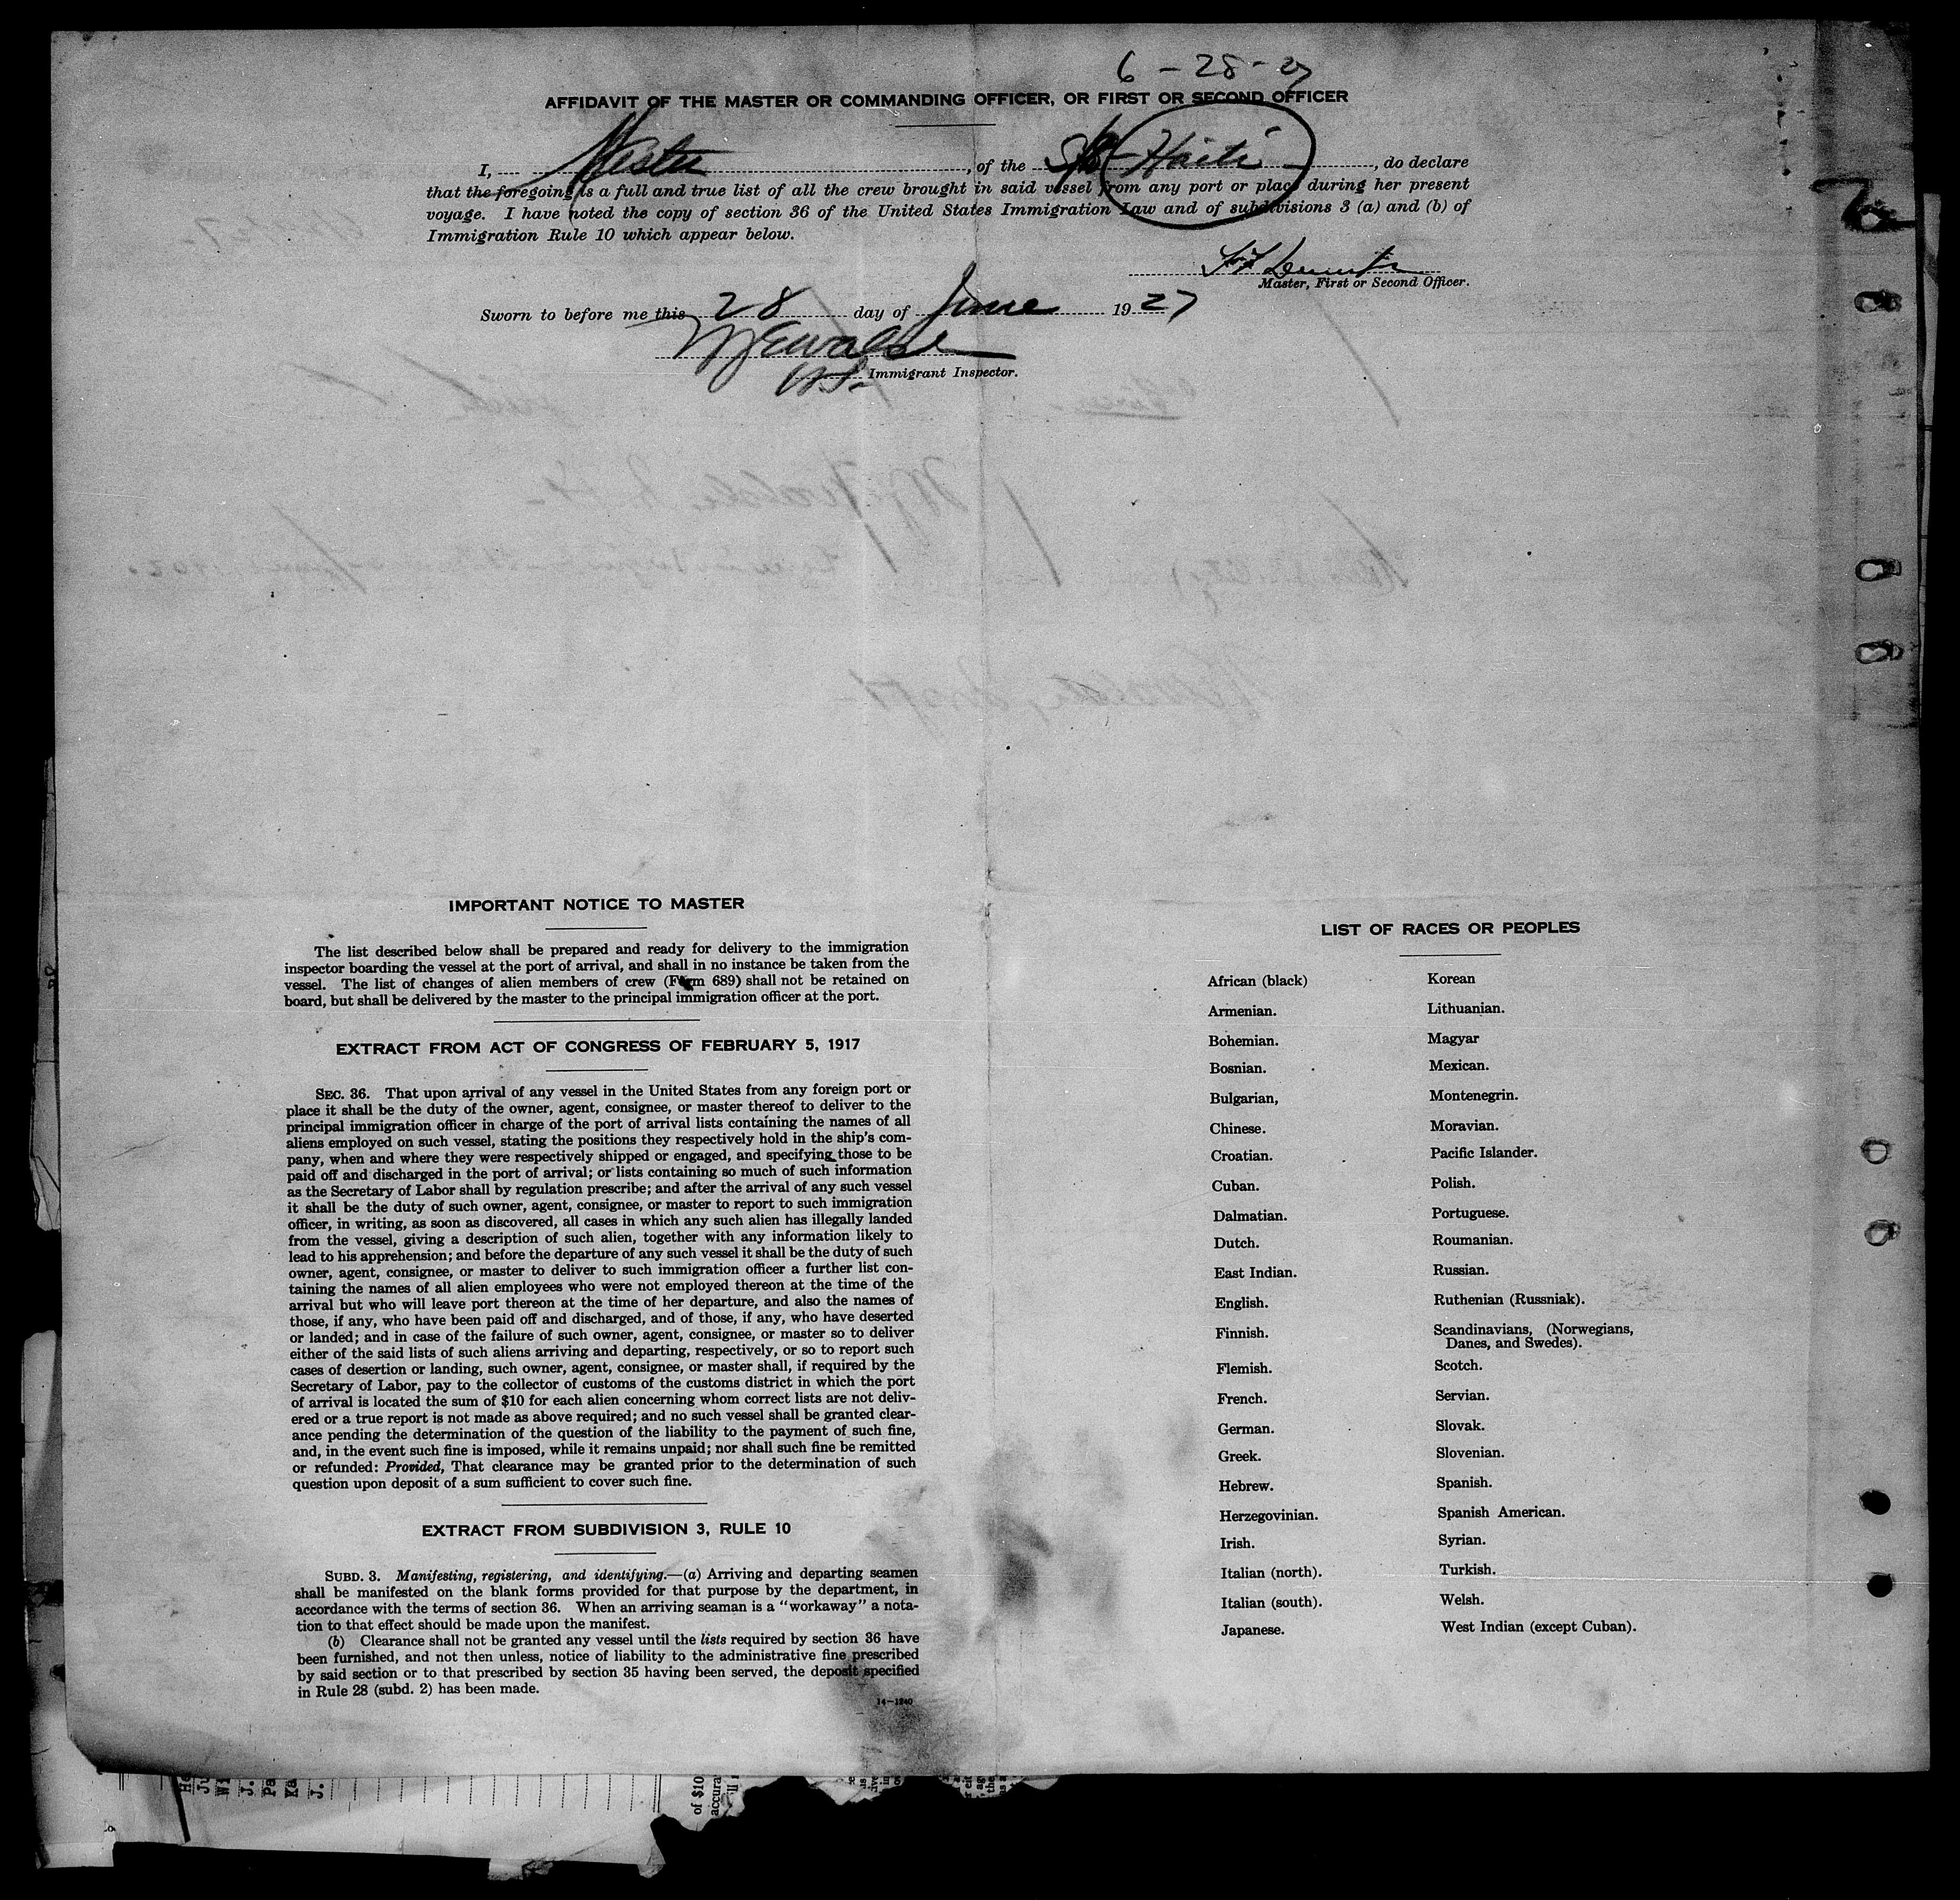 6 - 28 - 27
AFFIDAVIT OF THE MASTER OR COMMANDING OFFICER, OR FIRST OR SECOND OFFICER
I, Master, of the S/S Haiti, do declare
that the foregoing is a full and true list of all the crew brought in said vessel from any port or place during her present
voyage. I have noted the copy of section 36 of the United States Immigration Law and of subdivisions 3 (a) and (b) of
Immigration Rule 10 which appear below.
Master, First or Second Officer.
Sworn to before me this 28 day of June 1927
Immigrant Inspector.
IMPORTANT NOTICE TO MASTER
The list described below shall be prepared and ready for delivery to the immigration
inspector boarding the vessel at the port of arrival, and shall in no instance be taken from the
vessel. The list of changes of alien members of crew (Form 689) shall not be retained on
board, but shall be delivered by the master to the principal immigration officer at the port.
EXTRACT FROM ACT OF CONGRESS OF FEBRUARY 5, 1917
SEC. 36. That upon arrival of any vessel in the United States from any foreign port or
place it shall be the duty of the owner, agent, consignee, or master thereof to deliver to the
principal immigration officer in charge of the port of arrival lists containing the names of all
aliens employed on such vessel, stating the positions they respectively hold in the ship's com-
pany, when and where they were respectively shipped or engaged, and specifying those to be
paid off and discharged in the port of arrival; or lists containing so much of such information
as the Secretary of Labor shall by regulation prescribe; and after the arrival of any such vessel
it shall be the duty of such owner, agent, consignee, or master to report to such immigration
officer, in writing, as soon as discovered, all cases in which any such alien has illegally landed
from the vessel, giving a description of such alien, together with any information likely to
lead to his apprehension; and before the departure of any such vessel it shall be the duty of such
owner, agent, consignee, or master to deliver to such immigration officer a further list con-
taining the names of all alien employees who were not employed thereon at the time of the
arrival but who will leave port thereon at the time of her departure, and also the names of
those, if any, who have been paid off and discharged, and of those, if any, who have deserted
or landed; and in case of the failure of such owner, agent, consignee, or master so to deliver
either of the said lists of such aliens arriving and departing, respectively, or so to report such
cases of desertion or landing, such owner, agent, consignee, or master shall, if required by the
Secretary of Labor, pay to the collector of customs of the customs district in which the port
of arrival is located the sum of $10 for each alien concerning whom correct lists are not deliv-
ered or a true report is not made as above required; and no such vessel shall be granted clear-
ance pending the determination of the question of the liability to the payment of such fine,
and, in the event such fine is imposed, while it remains unpaid; nor shall such fine be remitted
or refunded: Provided, That clearance may be granted prior to the determination of such
question upon deposit of a sum sufficient to cover such fine.
EXTRACT FROM SUBDIVISION 3, RULE 10
SUBD. 3. Manifesting, registering, and identifying.—(a) Arriving and departing seamen
shall be manifested on the blank forms provided for that purpose by the department, in
accordance with the terms of section 36. When an arriving seaman is a "workaway" a nota-
tion to that effect should be made upon the manifest.
(b) Clearance shall not be granted any vessel until the lists required by section 36 have
been furnished, and not then unless, notice of liability to the administrative fine prescribed
by said section or to that prescribed by section 35 having been served, the deposit specified
in Rule 28 (subd. 2) has been made.
14—1240
LIST OF RACES OR PEOPLES
African (black)
Armenian.
Bohemian.
Bosnian.
Bulgarian,
Chinese.
Croatian.
Cuban.
Dalmatian.
Dutch.
East Indian.
English.
Finnish.
Flemish.
French.
German.
Greek.
Hebrew.
Herzegovinian.
Irish.
Italian (north).
Italian (south).
Japanese.
Korean
Lithuanian.
Magyar
Mexican.
Montenegrin.
Moravian.
Pacific Islander.
Polish.
Portuguese.
Roumanian.
Russian.
Ruthenian (Russniak).
Scandinavians, (Norwegians,
Danes, and Swedes).
Scotch.
Servian.
Slovak.
Slovenian.
Spanish.
Spanish American.
Syrian.
Turkish.
Welsh.
West Indian (except Cuban).